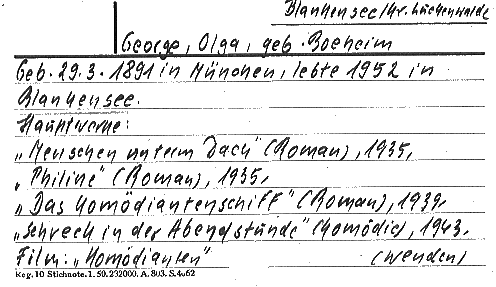 Blankensee/Kr. Luckenwalde
George, Olga, geb. Boeheim
Geb. 29.3.1891 in München, lebte 1952 in
Blankensee.
Hauptwerke:
„Menschen unterm Dach" (Roman), 1935,
„Philine" (Roman), 1935,
„Das Komödiantenschiff" (Roman), 1939,
„Schreck in der Abendstunde" (Komödie), 1943.
Film: „Komödianten" (wenden)
Reg. 10 Stichnote. 1. 59. 232000. A. 803. S. 4062